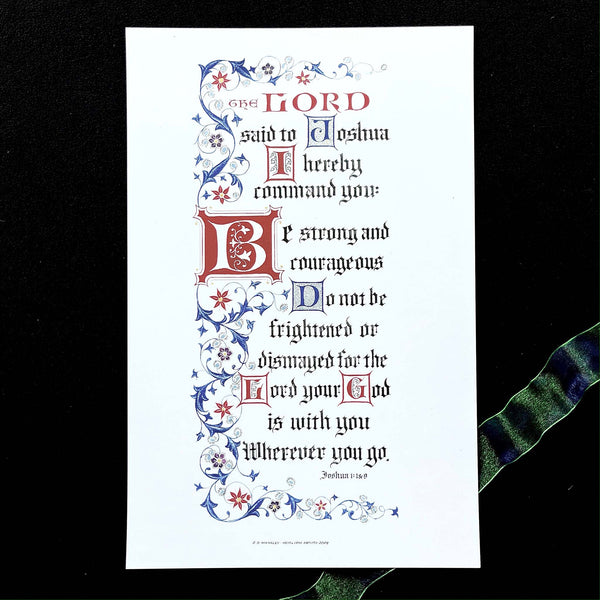 THE LORD
said to Joshua
I hereby
command you:
Be strong and
courageous
Do not be
frightened or
dismayed for the
Lord your God
is with you
Wherever you go.
Joshua 1:1&9